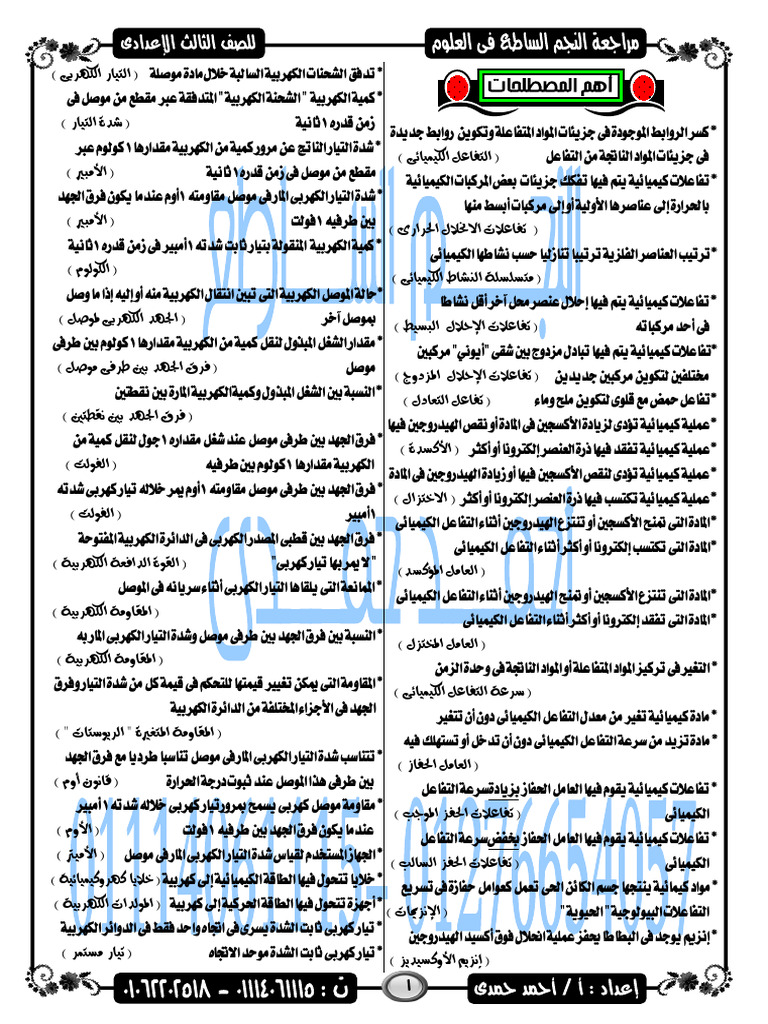 مراجعة النجم الساطع فى العلوم
للصف الثالث الإعدادى
أهم المصطلحات
*كسر الروابط الموجودة فى جزيئات المواد المتفاعلة وتكوين روابط جديدة
فى جزيئات المواد الناتجة من التفاعل ( التفاعل الكيميائى )
*تفاعلات كيميائية يتم فيها تفكك جزيئات بعض المركبات الكيميائية
بالحرارة إلى عناصرها الأولية أو إلى مركبات أبسط منها
( تفاعلات الانحلال الحرارى )
*ترتيب العناصر الفلزية ترتيبا تنازليا حسب نشاطها الكيميائى
( متسلسلة النشاط الكيميائى )
*تفاعلات كيميائية يتم فيها إحلال عنصر محل آخر أقل نشاطا
فى أحد مركباته ( تفاعلات الإحلال البسيط )
*تفاعلات كيميائية يتم فيها تبادل مزدوج بين شقى "أيوني" مركبين
مختلفين لتكوين مركبين جديدين ( تفاعلات الإحلال المزدوج )
*تفاعل حمض مع قلوى لتكوين ملح وماء ( تفاعل التعادل )
*عملية كيميائية تؤدى لزيادة الأكسجين فى المادة أو نقص الهيدروجين فيها
*عملية كيميائية تفقد فيها ذرة العنصر إلكترونا أو أكثر ( الأكسدة )
*عملية كيميائية تؤدى لنقص الأكسجين فيها أو زيادة الهيدروجين فى المادة
*عملية كيميائية تكتسب فيها ذرة العنصر إلكترونا أو أكثر ( الاختزال )
*المادة التى تمنح الأكسجين أو تنتزع الهيدروجين أثناء التفاعل الكيميائى
*المادة التى تكتسب إلكترونا أو أكثر أثناء التفاعل الكيميائى
( العامل المؤكسد )
*المادة التى تنتزع الأكسجين أو تمنح الهيدروجين أثناء التفاعل الكيميائى
*المادة التى تفقد إلكترونا أو أكثر أثناء التفاعل الكيميائى
( العامل المختزل )
*التغير فى تركيز المواد المتفاعلة أو المواد الناتجة فى وحدة الزمن
( سرعة التفاعل الكيميائى )
*مادة كيميائية تغير من معدل التفاعل الكيميائى دون أن تتغير
*مادة تزيد من سرعة التفاعل الكيميائى دون أن تدخل أو تستهلك فيه
( العامل الحفاز )
*تفاعلات كيميائية يقوم فيها العامل الحفاز بزيادة سرعة التفاعل
الكيميائى ( تفاعلات الحفز الموجب )
*تفاعلات كيميائية يقوم فيها العامل الحفاز بخفض سرعة التفاعل
الكيميائى ( تفاعلات الحفز السالب )
*مواد كيمائية ينتجها جسم الكائن الحى تعمل كعوامل حفازة فى تسريع
التفاعلات البيولوجية "الحيوية" ( الإنزيمات )
*إنزيم يوجد فى البطاطا يحفز عملية انحلال فوق أكسيد الهيدروجين
( إنزيم الأوكسيديز )
*تدفق الشحنات الكهربية السالبة خلال مادة موصلة ( التيار الكهربى )
*كمية الكهربية "الشحنة الكهربية" المتدفقة عبر مقطع من موصل فى
زمن قدره ١ ثانية ( شدة التيار )
*شدة التيار الناتج عن مرور كمية من الكهربية مقدارها ١ كولوم عبر
مقطع من موصل فى زمن قدره ١ ثانية ( الأمبير )
*شدة التيار الكهربى المار فى موصل مقاومته ١ أوم عندما يكون فرق الجهد
بين طرفيه ١ فولت ( الأمبير )
*كمية الكهربية المنقولة بتيار ثابت شدته ١ أمبير فى زمن قدره ١ ثانية
( الكولوم )
*حالة الموصل الكهربية التى تبين انتقال الكهربية منه أو إليه إذا ما وصل
بموصل آخر ( الجهد الكهربى لموصل )
*مقدار الشغل المبذول لنقل كمية من الكهربية مقدارها ١ كولوم بين طرفى
موصل ( فرق الجهد بين طرفى موصل )
*النسبة بين الشغل المبذول وكمية الكهربية المارة بين نقطتين
( فرق الجهد بين نقطتين )
*فرق الجهد بين طرفى موصل عند شغل مقداره ١ جول لنقل كمية من
الكهربية مقدارها ١ كولوم بين طرفيه ( الفولت )
*فرق الجهد بين طرفى موصل مقاومته ١ أوم يمر خلاله تيار كهربى شدته
١ أمبير ( الفولت )
*فرق الجهد بين قطبى المصدر الكهربى فى الدائرة الكهربية المفتوحة
"لا يمر بها تيار كهربى" ( القوة الدافعة الكهربية )
*الممانعة التى يلقاها التيار الكهربى أثناء سريانه فى الموصل
( المقاومة الكهربية )
*النسبة بين فرق الجهد بين طرفى موصل وشدة التيار الكهربى المار به
( المقاومة الكهربية )
*المقاومة التى يمكن تغيير قيمتها للتحكم فى قيمة كل من شدة التيار وفرق
الجهد فى الأجزاء المختلفة من الدائرة الكهربية
( المقاومة المتغيرة " الريوستات " )
*تتناسب شدة التيار الكهربى المار فى موصل تناسبا طرديا مع فرق الجهد
بين طرفى هذا الموصل عند ثبوت درجة الحرارة ( قانون أوم )
*مقاومة موصل كهربى يسمح بمرور تيار كهربى خلاله شدته ١ أمبير
عندما يكون فرق الجهد بين طرفيه ١ فولت ( الأوم )
*الجهاز المستخدم لقياس شدة التيار الكهربى المار فى موصل ( الأميتر )
*خلايا تتحول فيها الطاقة الكيميائية إلى كهربية ( خلايا كهروكيميائية )
*أجهزة تتحول فيها الطاقة الحركية إلى كهربية ( المولدات الكهربية )
*تيار كهربى ثابت الشدة يسرى فى اتجاه واحد فقط فى الدوائر الكهربية
*تيار كهربى ثابت الشدة موحد الاتجاه ( تيار مستمر )
النجم الساطع
أحمد حمدى
01114061115 - 01276654057
إعداد : أ / أحمد حمدى
١
ت : ٠١١١٤٠٦١١١٥ – ٠١٠٦٢٢٠٢٥١٨